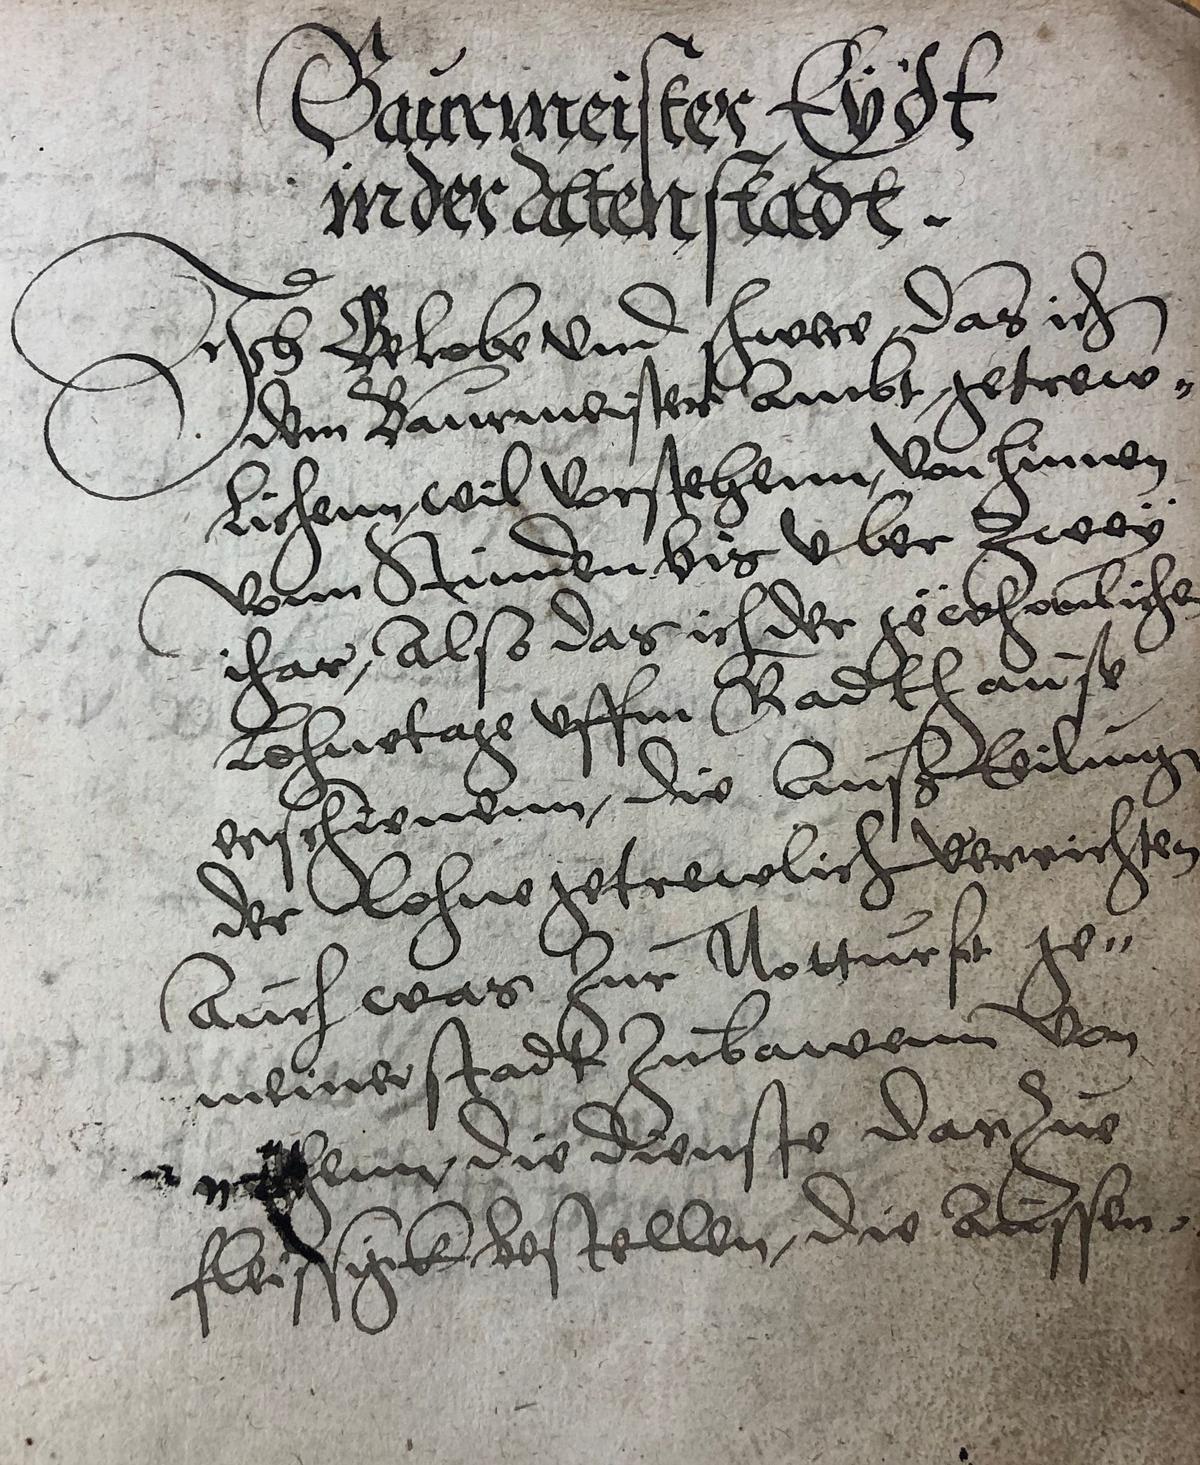 Baurmeister Eydt
in der Altenstadt.
Ich Gelobe vnd schwere, das ich
dem Baurmeister Ambt, getrew„
lichenn, wil vorstehenn, von hinnen
vonn Stunden bis vber Zwey
ihar, Also das ich der gewhonliche
Lohnetage vffm Radthause
erschienenn, die Auß theilung
der Lohne getrewlich verrichten
Auch was Zur Notturft ge„
meiner stadt Zubawenn von
die dienste darZue
fleissigk bestellen, die Aussen